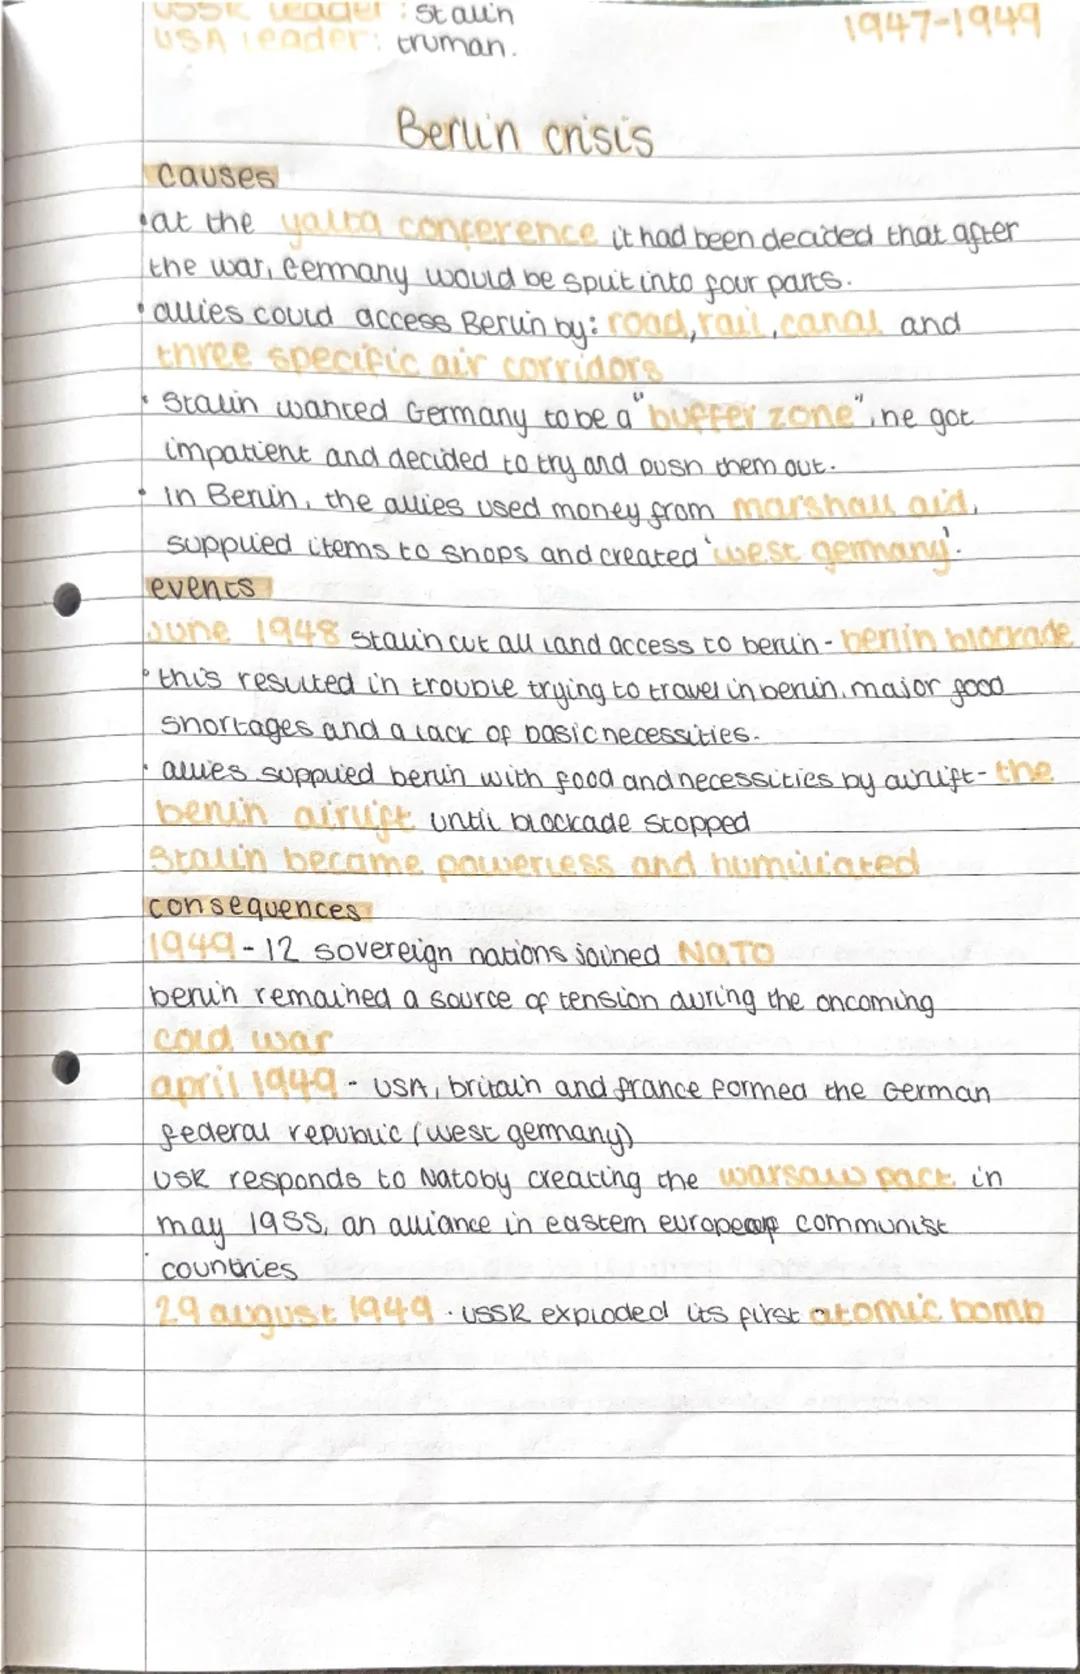 USSR leader: Stalin
USA leader: truman.
1947-1949
Berlin crisis
causes
•at the yalta conference it had been decided that after
the war, Germany would be split into four parts.
•allies could access Berlin by: road, rail, canal and
three specific air corridors
• Stalin wanted Germany to be a "buffer zone", he got
impatient and decided to try and push them out.
• in Berlin, the allies used money from marshall aid,
supplied items to shops and created 'west germany'.
events
June 1948 Stalin cut all land access to berlin - berlin blockade
•this resulted in trouble trying to travel in berlin, major food
shortages and a lack of basic necessities.
• allies supplied berlin with food and necessities by airlift - the
berlin airlift until blockade stopped
Stalin became powerless and humiliated
consequences
1949 - 12 sovereign nations joined NATO
berlin remained a source of tension during the oncoming
cold war
april 1949 - USA, britain and france formed the German
federal republic (west germany)
USR responds to Nato by creating the warsaw pact in
may 1955, an alliance in eastern european communist
countries
29 august 1949 - USSR exploded its first atomic bomb